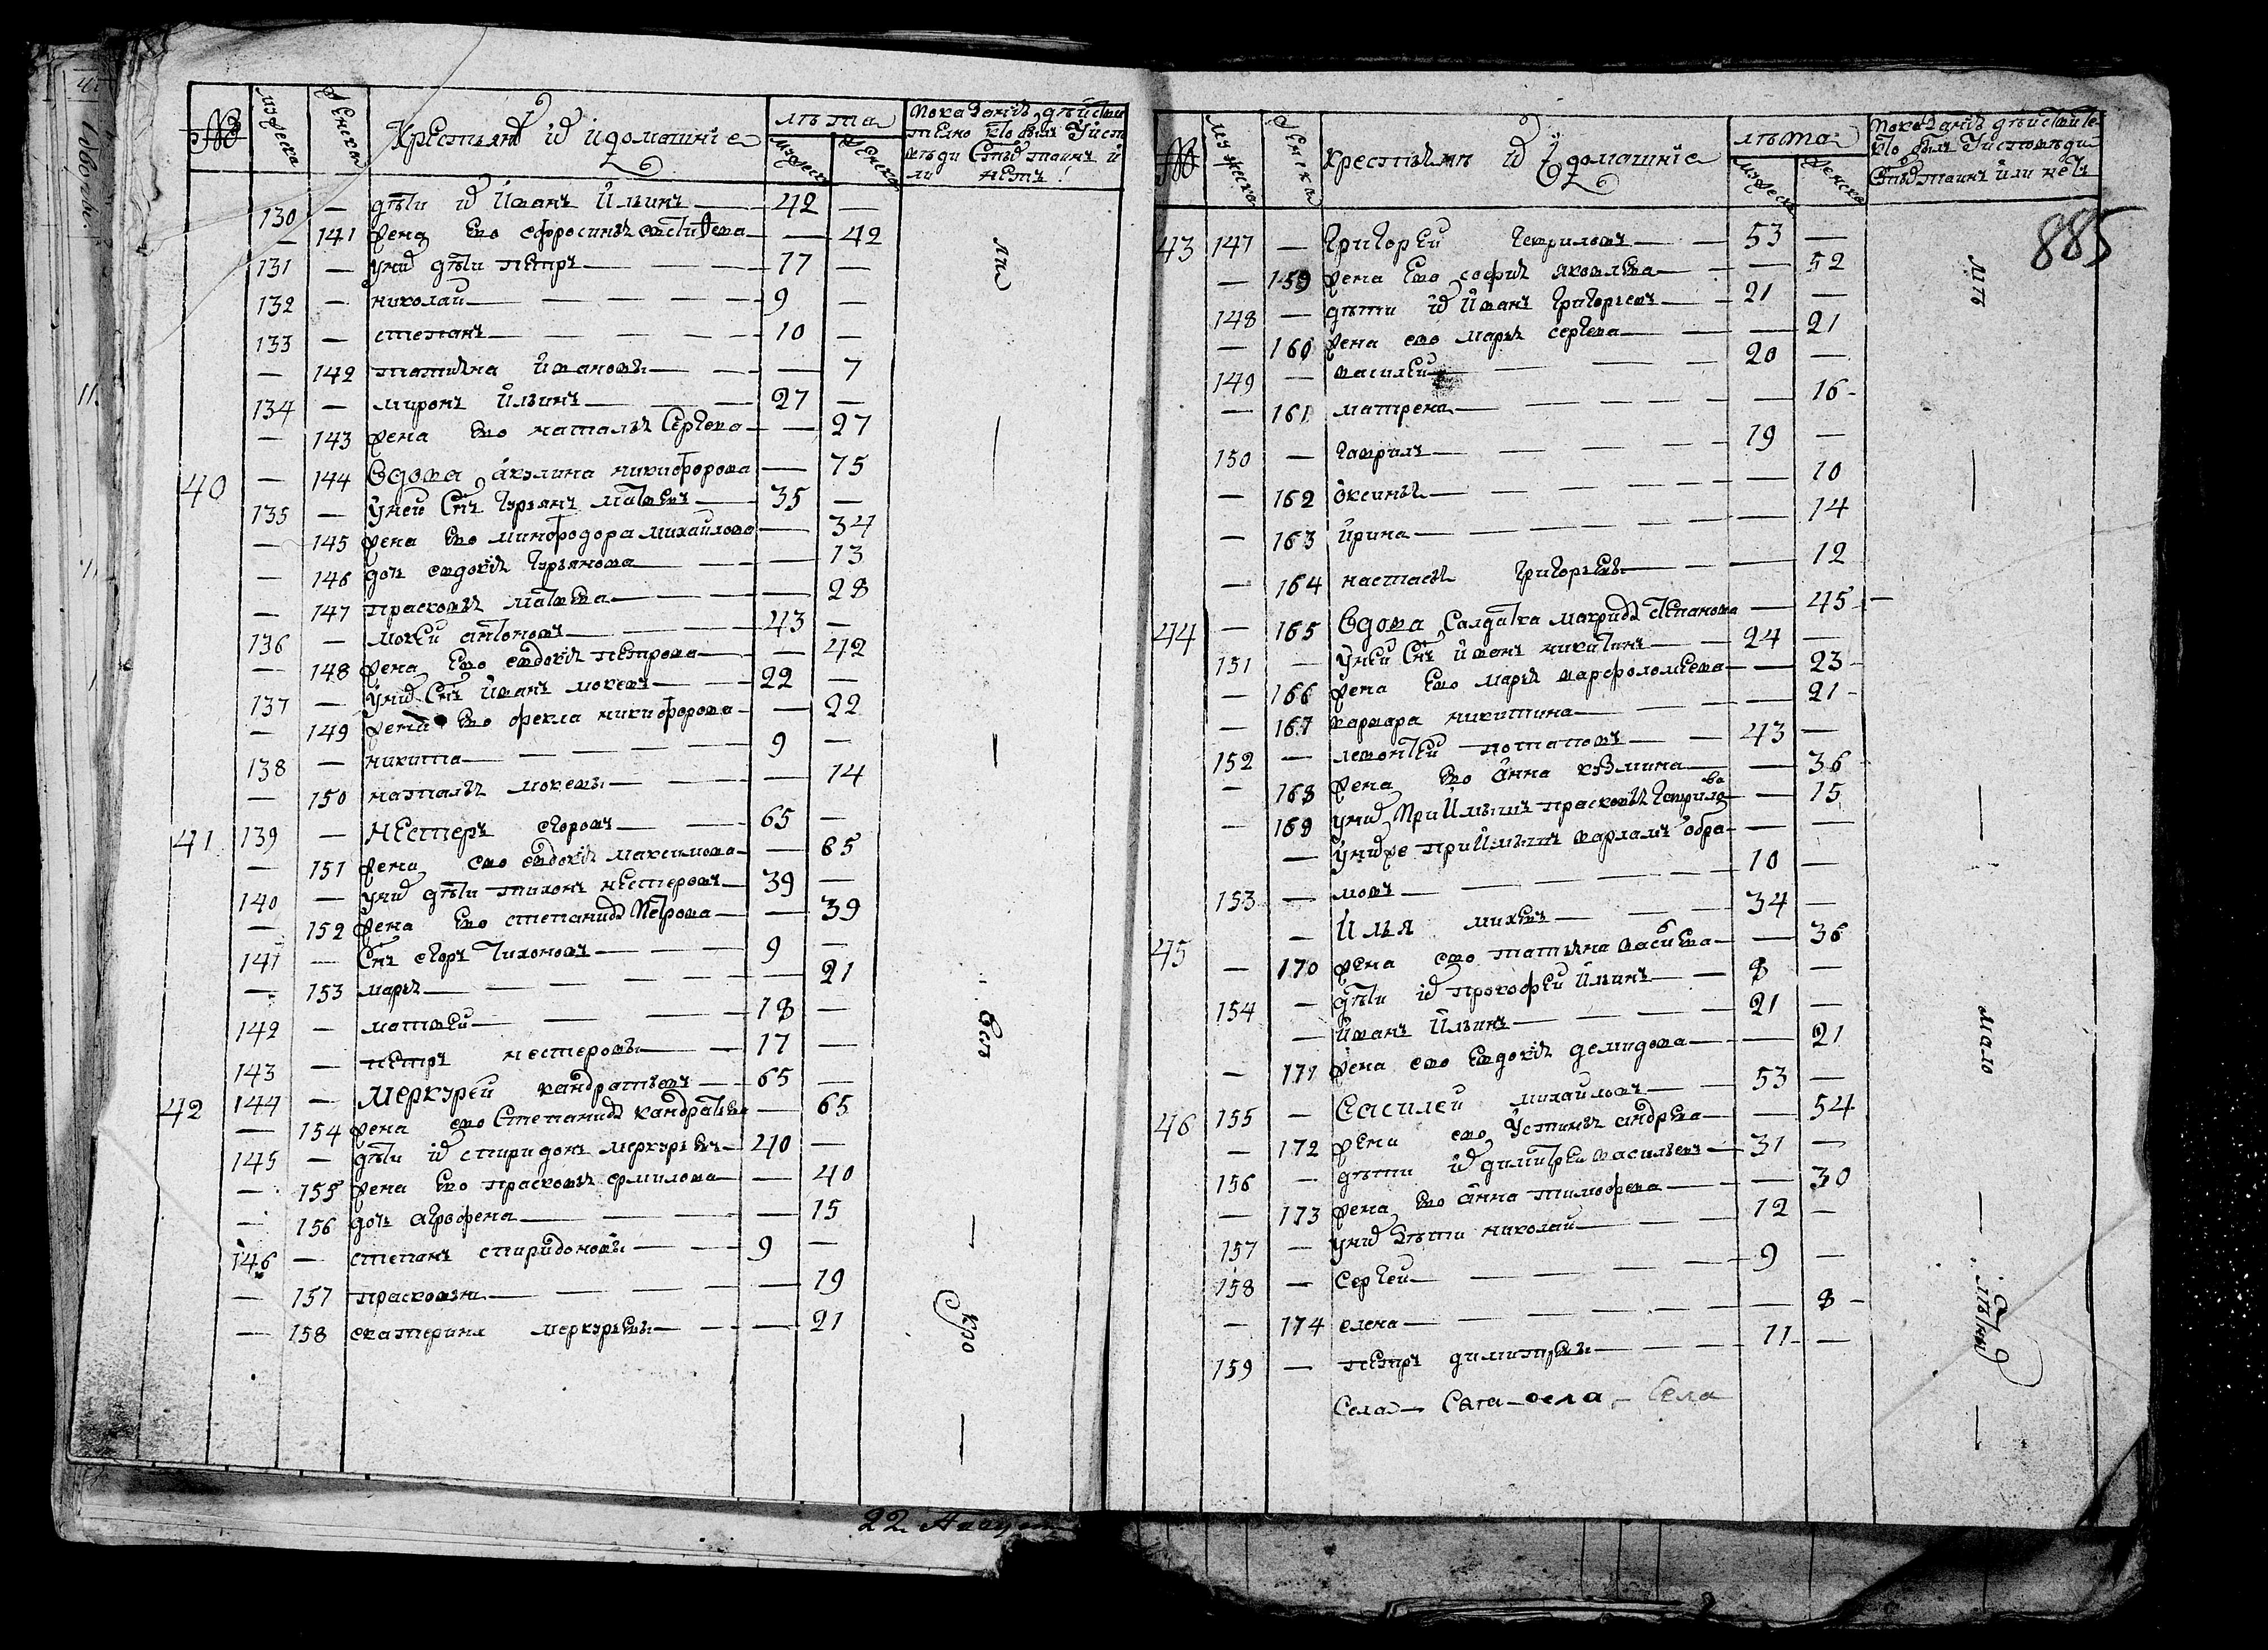 № мужеска женска Крестьяне их и домашние лѣта мужеск женска Показание действи
телно кто был у исп
веди Святых таинъ и
ли нетъ!
130 — дѣти их Иванъ Ильинъ — 42 —
— 141 жена Ево ефросинья евстифеева — — 42
131 — у них дѣти петръ — 17 —
132 — николай — 9 —
133 — степанъ — 10 —
— 142 татияна ивановы — — 7
134 — миронъ ильинъ — 27 —
— 143 жена Ево наталья Сергеева — — 27
40 — 144 вдова акулина никифорова — 75
135 — у неи Снъ гурьянъ матвеевъ — 35 —
— 145 жена Ево минфодора михаилова — 34
— 146 дочь евдокия гурьянова — — 13
— 147 прасковья матвеева — — 28
136 — мокей антоновъ — 43 —
— 148 жена Ево евдокия петрова — — 42
137 — у них Снъ иванъ мокеевъ — 22 —
— 149 жена Ево фекла никифорова — — 22
138 — никита — 9 —
— 150 наталья мокеевы — — 14
41 139 — Нестеръ егоровъ — 65 —
— 151 жена ево евдокия максимова — — 65
140 — у них дѣти тихонъ нестеровъ — 39 —
— 152 жена Ево степанида Петрова — — 39
141 — Снъ егоръ тихоновъ — 9 —
— 153 марья — — 21
142 — матвей — 18 —
143 — петръ нестеровы — 17 —
42 144 — Меркурей кандратьевъ — 65 —
— 154 жена ево Степанида кандратьева — 65
145 — дѣти их спиридонъ меркурьевъ — 40 —
— 155 жена Ево прасковья ермилова — — 40
— 156 дочь аграфена — — 15
146 — степанъ спиридоновы — 9 —
— 157 прасковья — — 19
— 158 екатерина меркурьевы — — 21
22 Август
№ мужеска женска Крестьяне их и домашние лѣта мужеск женска Показание действите
кто был у исповеди
Святых таинъ или нетъ
885
43 147 — Григорей гавриловъ — 53 —
— 159 жена Ево софия яковлева — — 52
148 — дѣти их Иванъ григорьевъ — 21 —
— 160 жена ево марья сергеева — — 21
149 — василей — 20 —
— 161 матрена — — 16
150 — гаврилъ — 19 —
— 162 оксинья — — 10
— 163 ирина — — 14
— 164 настасья григорьевы — — 12
44 — 165 вдова салдатка макрида степанова — 45
151 — у неи Снъ иванъ никитинъ — 24 —
— 166 жена Ево марья варфоломеева — — 23
— 167 варвара никитина — — 21
152 — левонтей потаповъ — 43 —
— 168 жена Ево анна кузмина — — 36
— 169 у них приимышъ прасковья гаврило
ва — — 15
— у них же приимышъ варламъ обра — — —
153 — мовъ — 10 —
45 — Илья михеевъ — 34 —
— 170 жена ево татияна васильева — — 36
154 — дѣти их прокофей ильинъ — 8 —
— иванъ ильинъ — 21 —
— 171 жена ево евдокия демидова — — 21
46 155 — Василей михаиловъ — 53 —
— 172 жена ево устинья андреева — — 54
156 — дѣти их димитрей васильевъ — 31 —
— 173 жена Ево анна тимофеева — — 30
157 — у них дѣти николай — 12 —
158 — Сергей — 9 —
— 174 елена — — 8
159 — петръ димитреевы — 11 —
Села — Села — села — Села